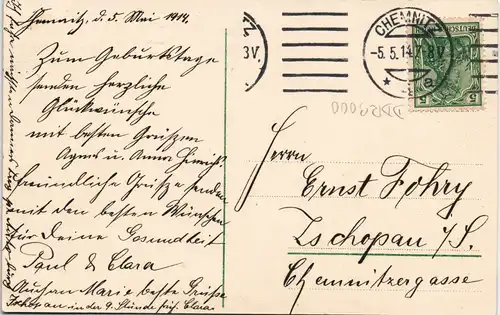 Chemnitz, d. 5. Mai 1914.
Zum Geburtstage
senden herzliche
Glückwünsche
mit besten Grüßen
Agnes u. Anna
freundliche Grüße senden
mit den besten Wünschen
für Deine Gesundheit
Paul & Clara
Marie beste Grüße
Zschopau in der 9. Stunde früh. Clara
CHEMNITZ
-5.5.14.7-8V
* a
3V
5 5
DDR9000
Herrn
Ernst Fohry
Zschopau i/S.
Chemnitzergasse